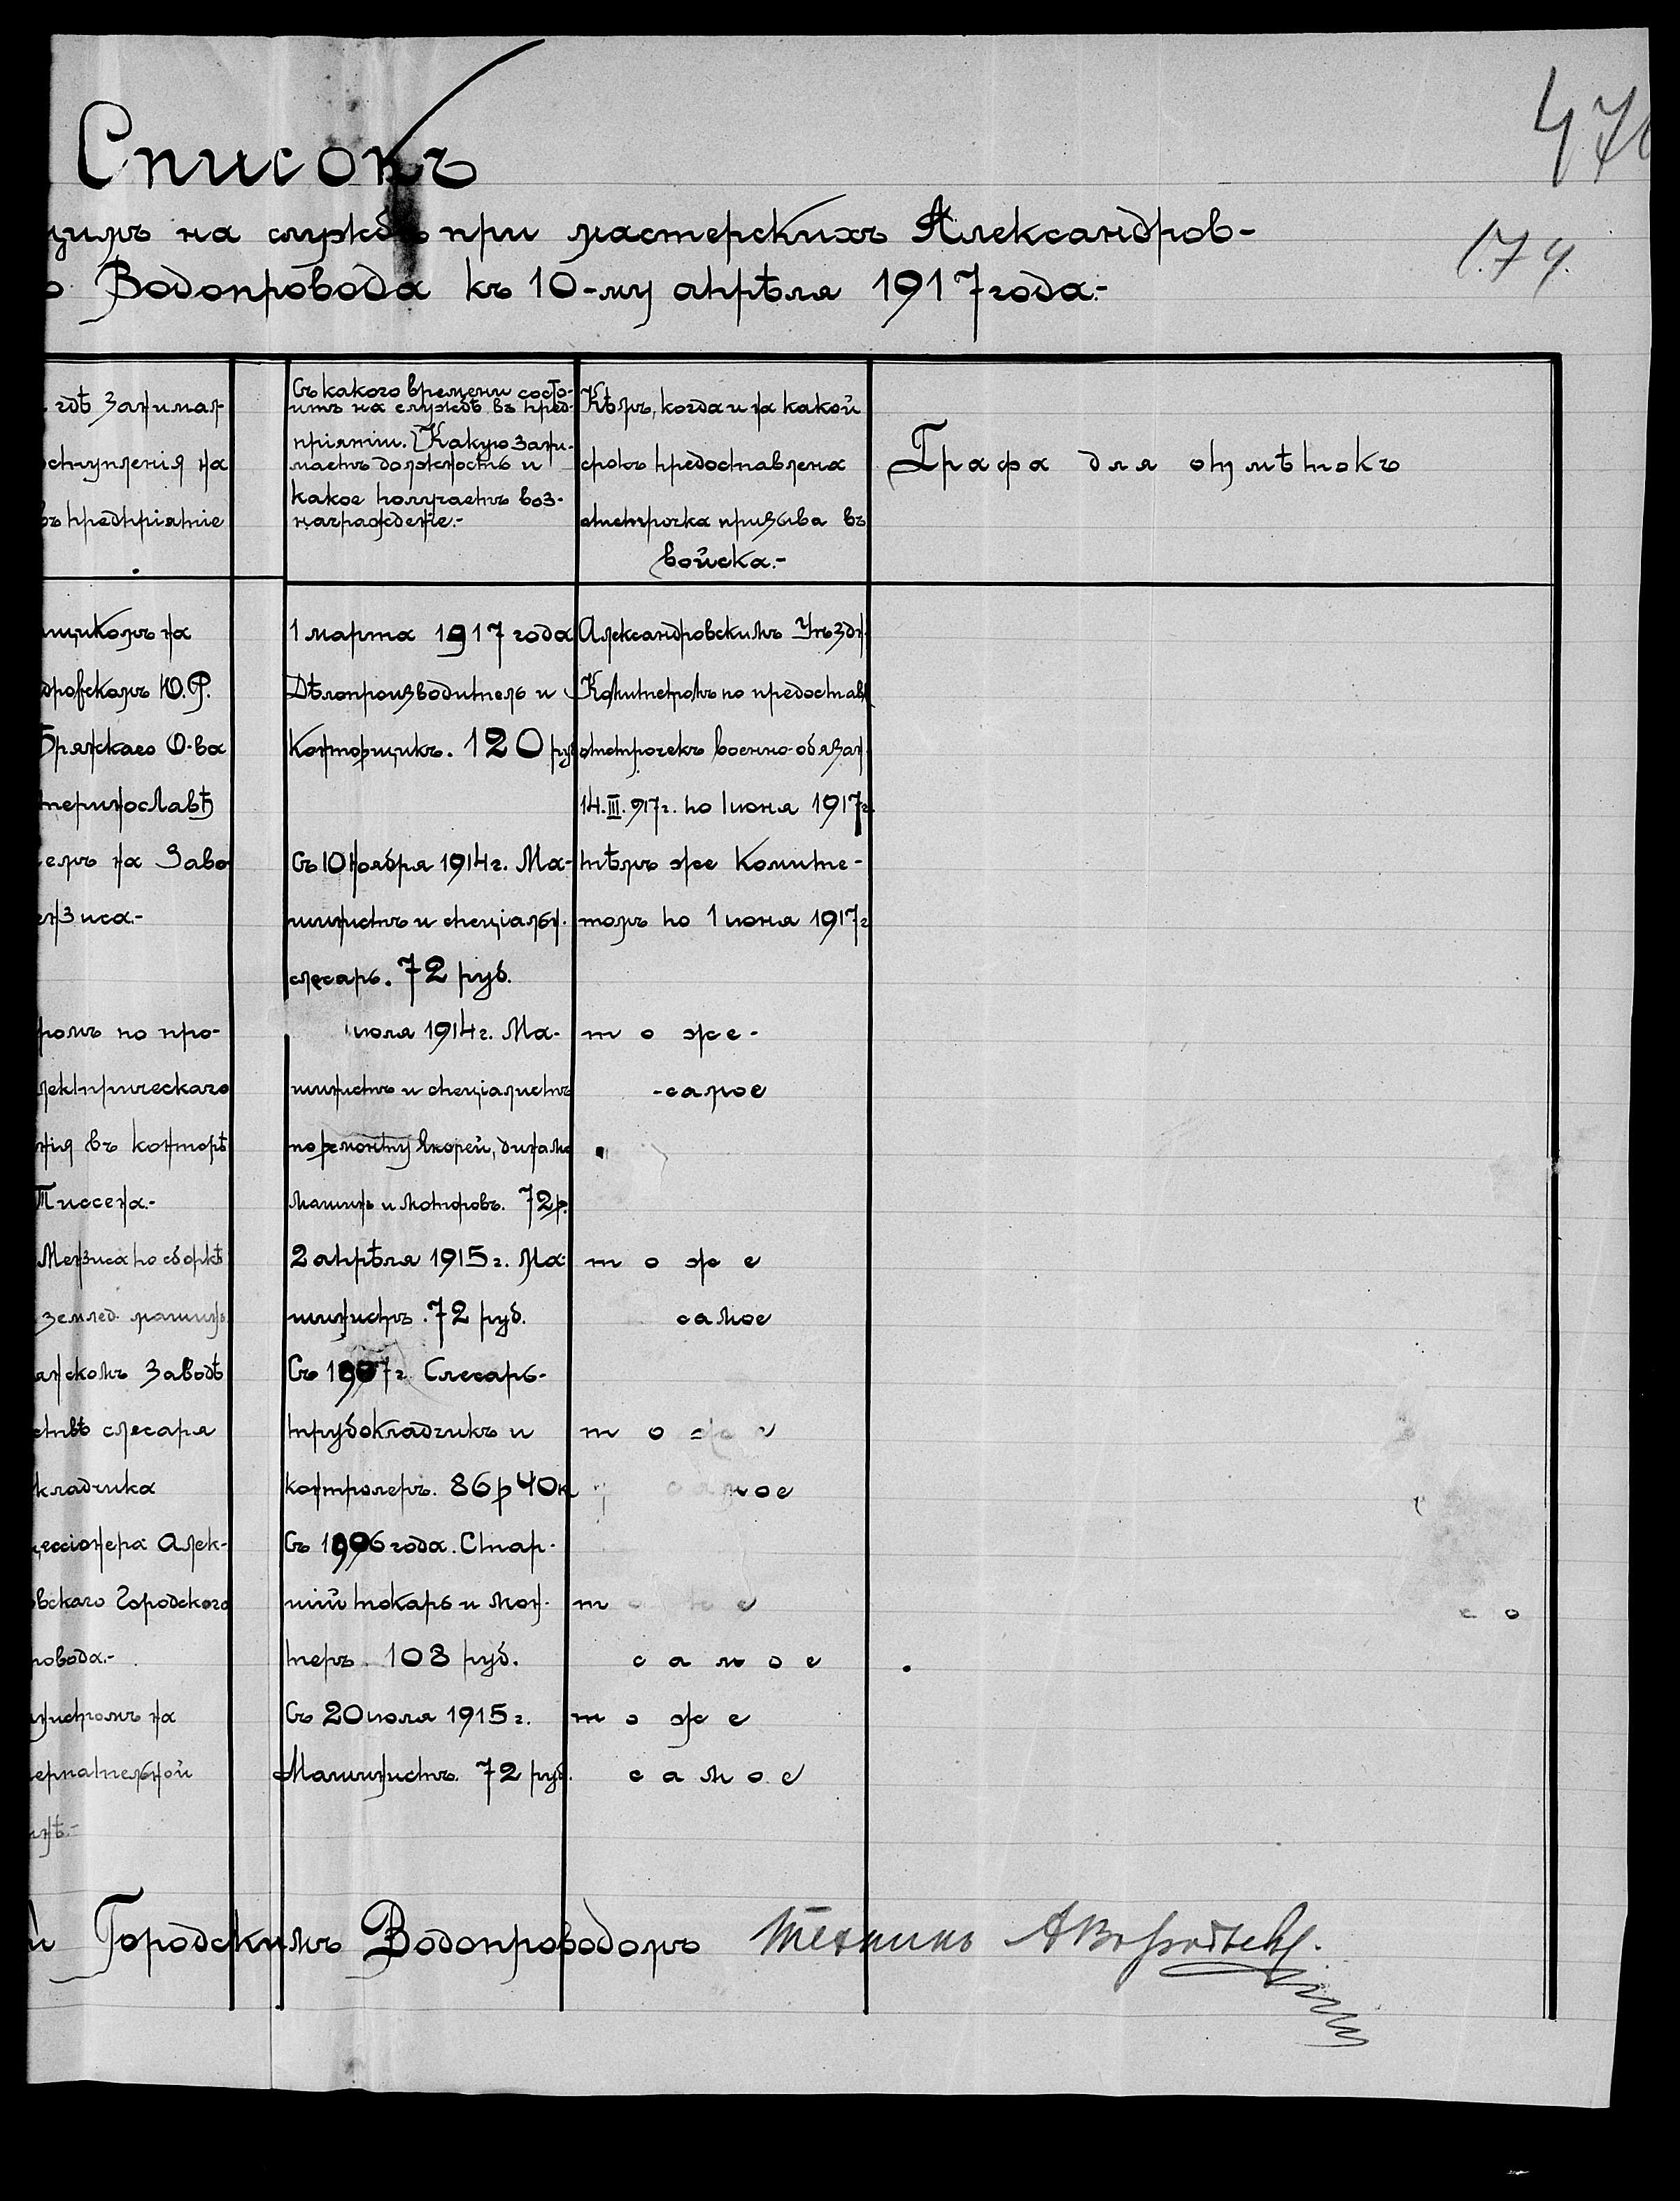 Списокъ
щимъ на службѣ при мастерскихъ Александров-
о Водопровода къ 10-му апрѣля 1917 года.-
476
174.
гдѣ занимал
оступленія на
въ предпріятіе
Съ какого времени состо-
итъ на службѣ въ пред-
пріятіи. Какую зани-
маетъ должность и
какое получаетъ воз-
награжденіе.-
Кѣмъ, когда и на какой
срокъ предоставлена
отсрочка призыва въ
войска.-
Графа для отмѣтокъ
щикомъ на
дровскомъ Ю.Р.
Брянскаго О-ва
теринославѣ
1 марта 1917 года
Дѣлопроизводитель и
Конторщикъ. 120 руб
Александровскимъ Уѣздн.
Комитетомъ по предостав
отсрочекъ военно-обязан.
14.III.917г. по 1 июня 1917г.
емъ на Заво
ензиса.-
Съ 10 ноября 1914г. Ма-
шинистъ и спеціальн.
слесарь. 72 руб.
тѣмъ же Комите-
томъ по 1 июня 1917г
ромъ по про-
лектрическаго
нія въ конторѣ
Тиссена.-
июля 1914г. Ма-
шинистъ и спеціалистъ
по ремонту якорей, динамо
машинъ и моторовъ. 72р.
то же-
-самое
Мензиса по сборкѣ
землед. машинъ
2 апрѣля 1915г. Ма-
шинистъ. 72 руб.
то же
самое
анскомъ Заводѣ
ствѣ слесаря
кладчика
Съ 1907г. Слесарь-
трубокладчикъ и
контролеръ. 86р 40к
то же
самое
цессіонера Алек-
вскаго Городского
ровода.-
Съ 1906 года. Стар-
шій токарь и мон-
теръ. 108 руб.
то же
самое
инистромъ на
черпательной
инѣ.-
Съ 20 июля 1915г.
Машинистъ. 72 руб.
то же
самое
й Городскимъ Водопроводомъ Техникъ